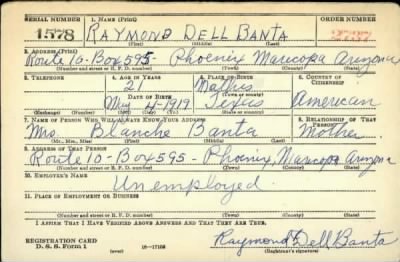 SERIAL NUMBER 1. NAME (Print) ORDER NUMBER
1578 RAYMOND DELL BANTA
(First) (Middle) (Last)
2. ADDRESS (Print)
Route 10-Box 595- Phoenix Maricopa Arizona
(Number and street or R. F. D. number) (Town) (County) (State)
3. TELEPHONE 4. AGE IN YEARS 5. PLACE OF BIRTH 6. COUNTRY OF CITIZENSHIP
21 Mathis
DATE OF BIRTH (Town or county)
May 4-1919 Texas American
(Exchange) (Number) (Mo.) (Day) (Yr.) (State or country)
7. NAME OF PERSON WHO WILL ALWAYS KNOW YOUR ADDRESS 8. RELATIONSHIP OF THAT PERSON
Mrs. Blanche Banta Mother
(Mr., Mrs., Miss) (First) (Middle) (Last)
9. ADDRESS OF THAT PERSON
Route 10-Box 595- Phoenix, Maricopa Arizona
(Number and street or R. F. D. number) (Town) (County) (State)
10. EMPLOYER'S NAME
Unemployed
11. PLACE OF EMPLOYMENT OR BUSINESS
(Number and street or R. F. D. number) (Town) (County) (State)
I AFFIRM THAT I HAVE VERIFIED ABOVE ANSWERS AND THAT THEY ARE TRUE.
REGISTRATION CARD Raymond Dell Banta
D. S. S. Form 1 (over) 16-17105 (Registrant's signature)